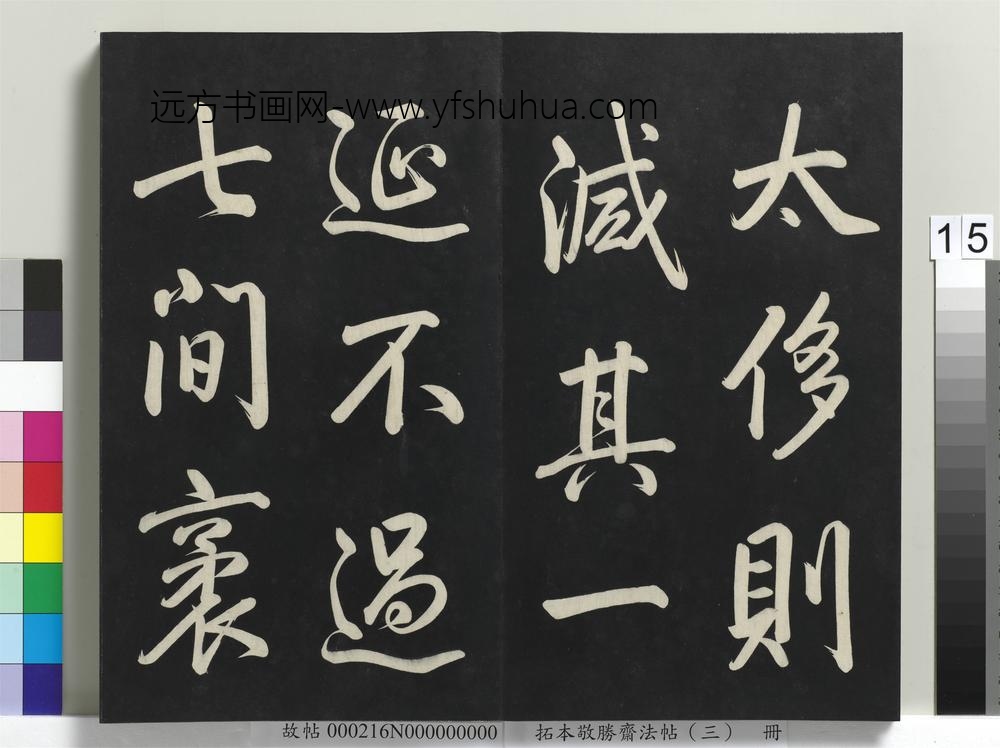 远方书画网-www.yfshuhua.com
太侈則
減其一
延不過
七間袤
15
故帖 000216N000000000 拓本敬勝齋法帖（三） 冊